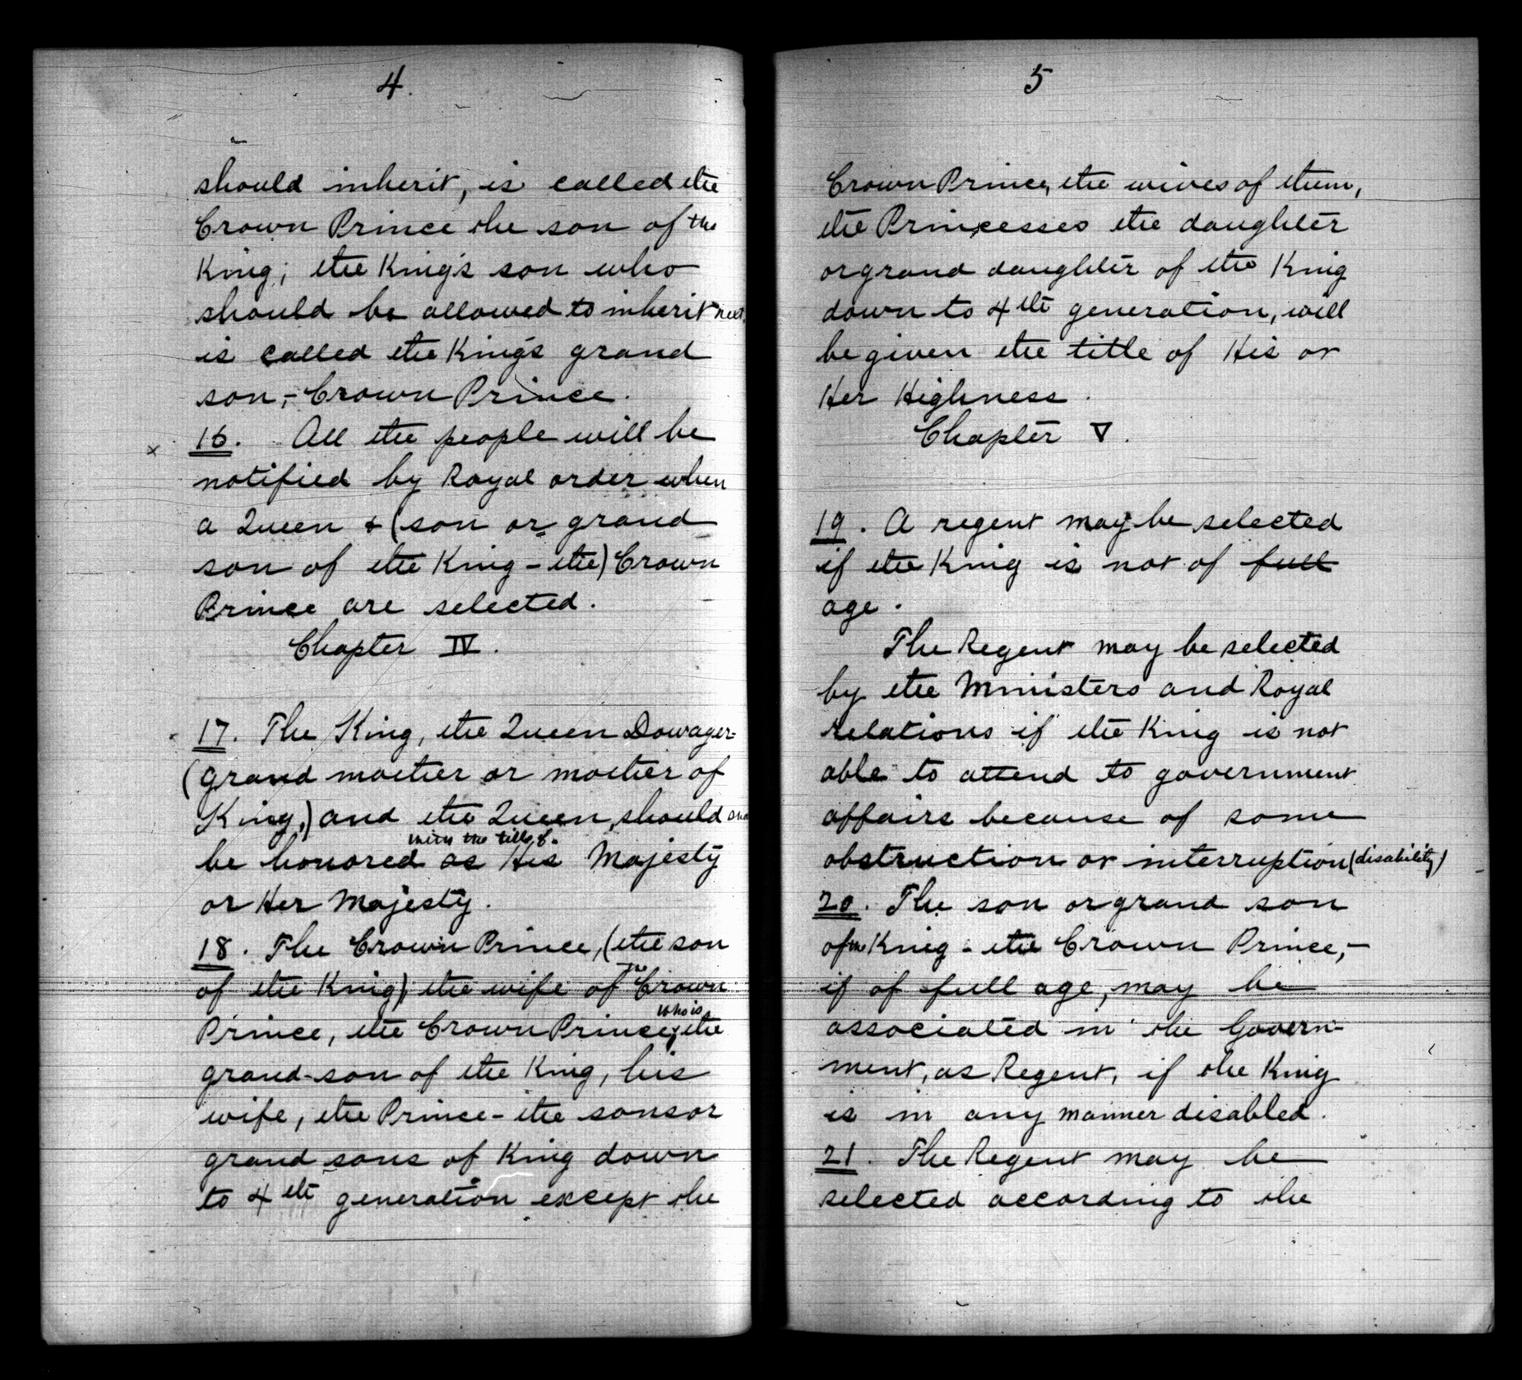 4.
should inherit, is called the
Crown Prince the son of the
King; the King's son who
should be allowed to inherit next.
is called the King's grand
son,- Crown Prince.
x 16. All the people will be
notified by Royal order when
a Queen & (son or grand
son of the King - the) Crown
Prince are selected.
Chapter IV.
17. The King, the Queen Dowager-
(grand mother or mother of
King,) and the Queen, should and
with the title of.
be honored as His Majesty
or Her Majesty.
18. The Crown Prince, (the son
of the King), the wife of the Crown
who is
Prince, the Crown Prince, the
grand-son of the King, his
wife, the Prince - the sons or
grand sons of King down
to 4th generation except the
5
Crown Prince, the wives of them,
the Princesses the daughter
or grand daughter of the King
down to 4th generation, will
be given the title of His or
Her Highness.
Chapter V.
19. A regent may be selected
if the King is not of full
age.
The Regent may be selected
by the Ministers and Royal
relations if the King is not
able to attend to government
affairs because of some
obstruction or interruption (disability)
20. The son or grand son
of the King - the Crown Prince,-
if of full age, may be
associated in the Govern-
ment, as Regent, if the King
is in any manner disabled.
21. The Regent may be
selected according to the